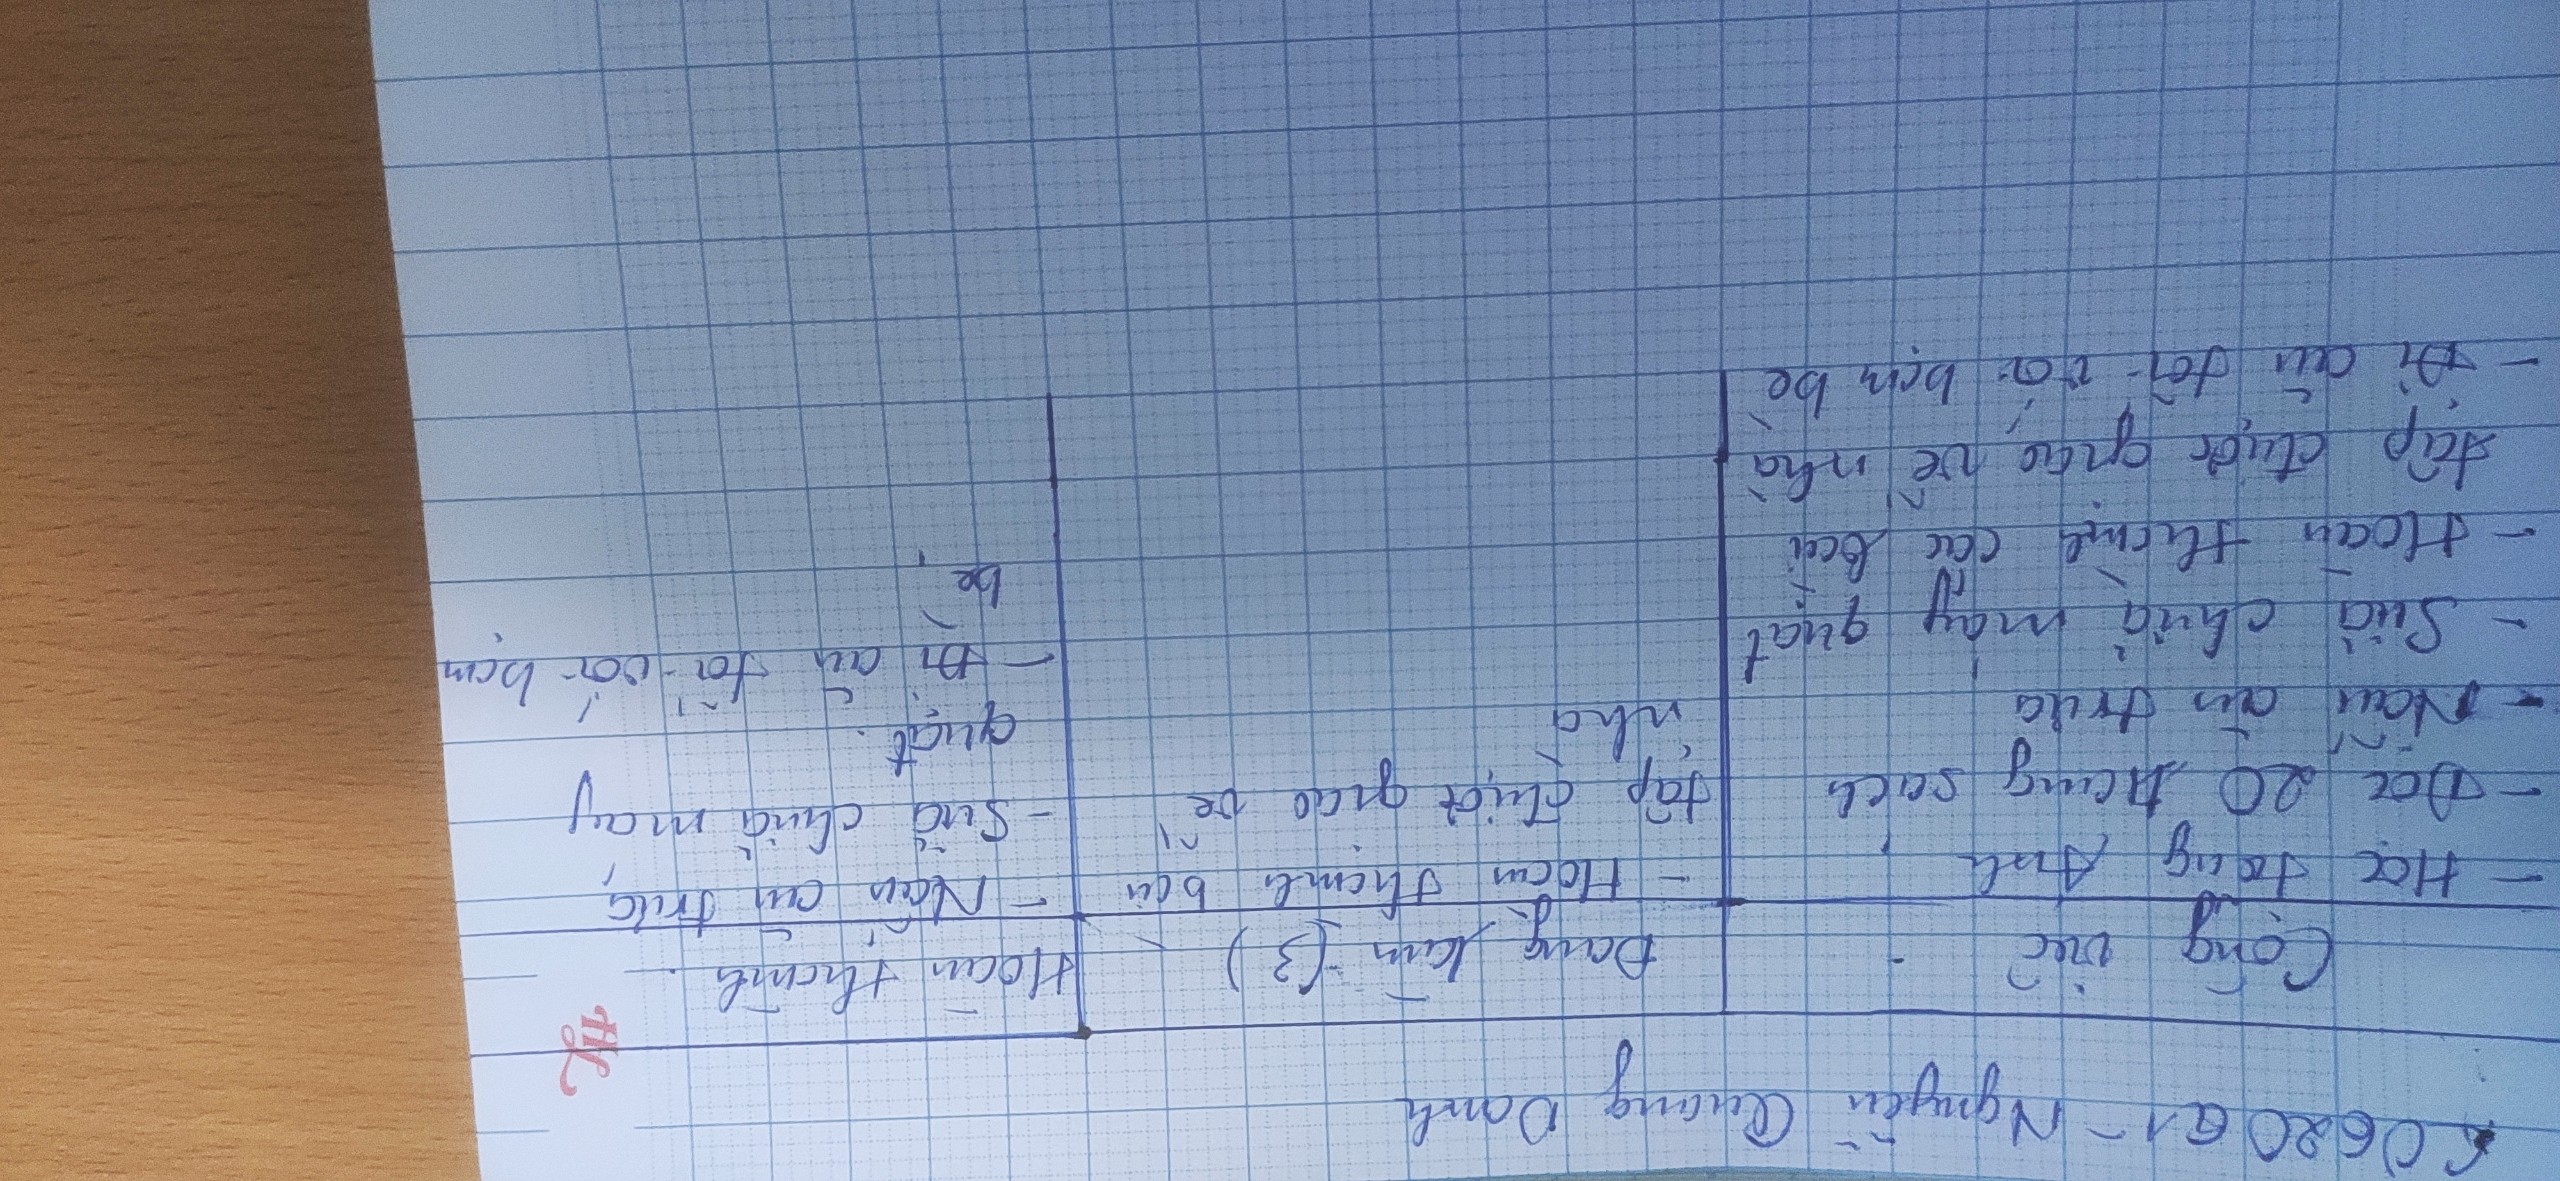 C0620G1 - Nguyễn Quang Danh
Công việc
Đang làm (3)
Hoàn thành.
- Học tiếng Anh
- Đọc 20 trang sách
- Nấu ăn trưa
- Sửa chữa máy quạt
- Hoàn thành các bài
tập được giao về nhà
- Đi ăn tối với bạn bè
- Hoàn thành bài
tập được giao về
nhà
- Nấu ăn trưa
- Sửa chữa máy
quạt.
- Đi ăn tối với bạn
bè